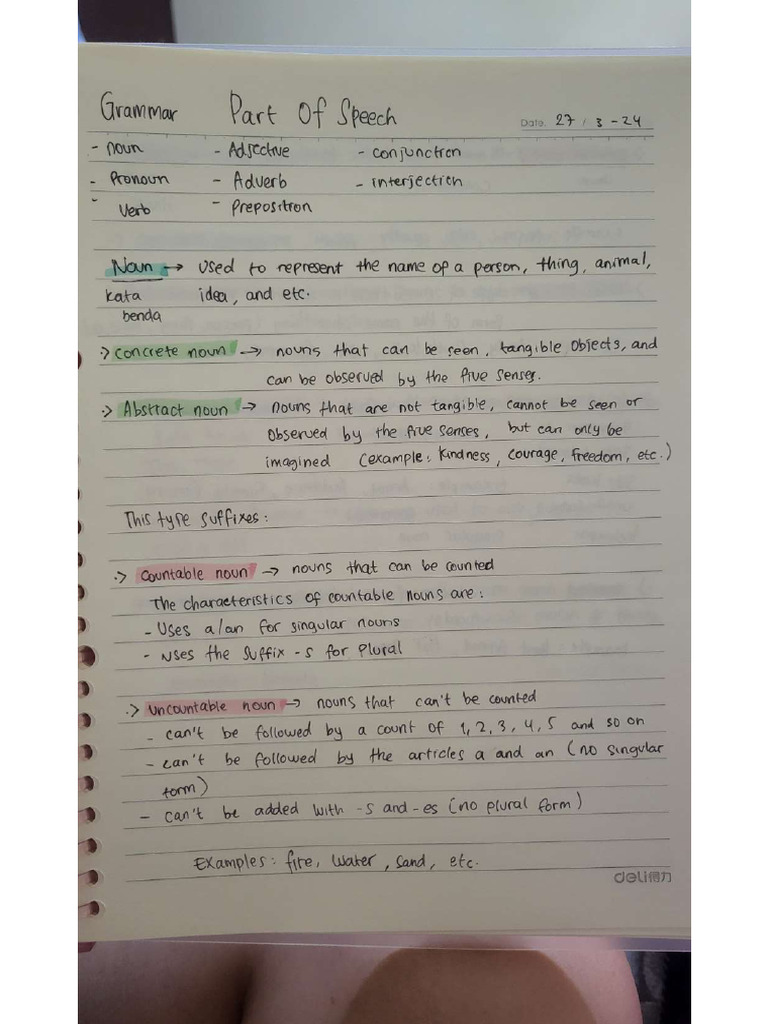 Grammar Part Of Speech Date. 27 / 3 - 24
- noun - Adjective - conjunction
- Pronoun - Adverb - interjection
- Verb - Preposition
Noun → used to represent the name of a person, thing, animal,
kata idea, and etc.
benda
:> concrete noun → nouns that can be seen, tangible objects, and
can be observed by the five senses.
:> Abstract noun → nouns that are not tangible, cannot be seen or
observed by the five senses, but can only be
imagined (example: kindness, courage, freedom, etc.)
This type suffixes:
:> countable noun → nouns that can be counted
The characteristics of countable nouns are:
- Uses a/an for singular nouns
- uses the suffix -s for plural
:> uncountable noun → nouns that can't be counted
- can't be followed by a count of 1, 2, 3, 4, 5 and so on
- can't be followed by the articles a and an (no singular
form)
- can't be added with -s and -es (no plural form)
Examples: fire, water, sand, etc.
deli得力